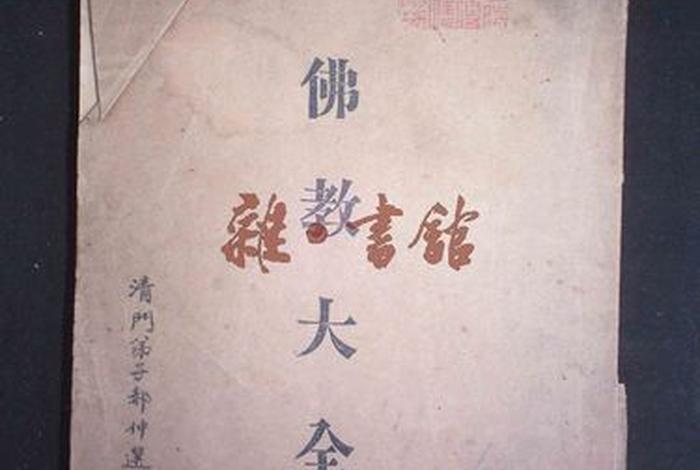 佛教大全
雜·書館
清門弟子郝仲選